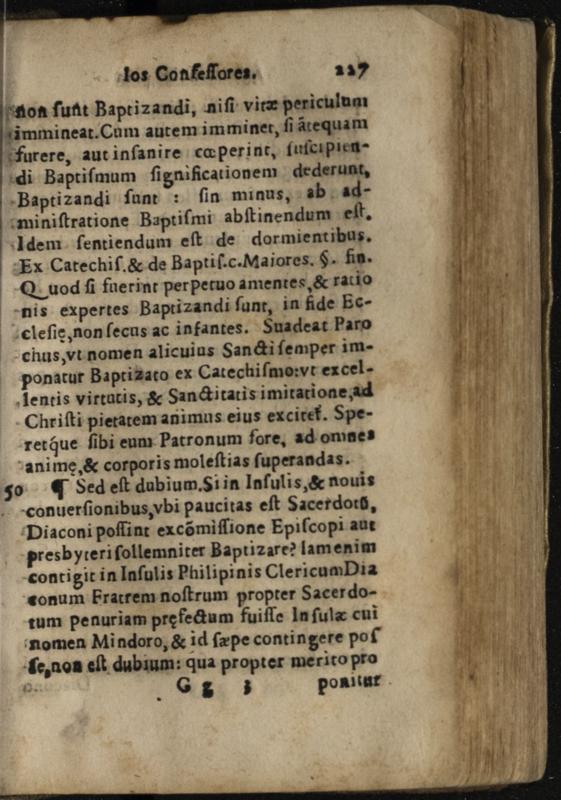 los Confessores. 227
non sunt Baptizandi, nisi vitæ periculum
immineat. Cum autem imminet, si ãtequam
furere, aut insanire cœperint, suscipien-
di Baptismum significationem dederunt,
Baptizandi sunt : sin minus, ab ad-
ministratione Baptismi abstinendum est.
Idem sentiendum est de dormientibus.
Ex Catechis. & de Baptis.c.Maiores. §. fin.
Quod si fuerint perpetuo amentes, & ratio
nis expertes Baptizandi sunt, in fide Ec-
clesię, non secus ac infantes. Suadeat Paro
chus, vt nomen alicuius Sancti semper im-
ponatur Baptizato ex Catechismo: vt excel-
lentis virtutis, & Sanctitatis imitatione, ad
Christi pietatem animus eius excitet̃. Spe-
retq́ue sibi eum Patronum fore, ad omnes
animę, & corporis molestias superandas.
50 ¶ Sed est dubium. Si in Insulis, & nouis
conuersionibus, vbi paucitas est Sacerdotũ,
Diaconi possint excõmissione Episcopi aut
presbyteri sollemniter Baptizare? Iam enim
contigit in Insulis Philipinis Clericum Dia
conum Fratrem nostrum propter Sacerdo-
tum penuriam pręfectum fuisse Insulæ cui
nomen Mindoro, & id sæpe contingere pos
se, non est dubium: qua propter merito pro
G g 3 ponitur